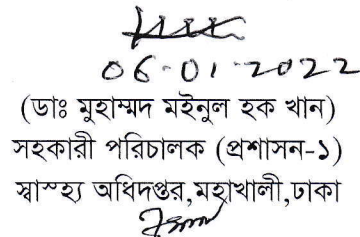 06-01-2022
(ডাঃ মুহাম্মদ মইনুল হক খান)
সহকারী পরিচালক (প্রশাসন-১)
স্বাস্হ্য অধিদপ্তর,মহাখালী,ঢাকা